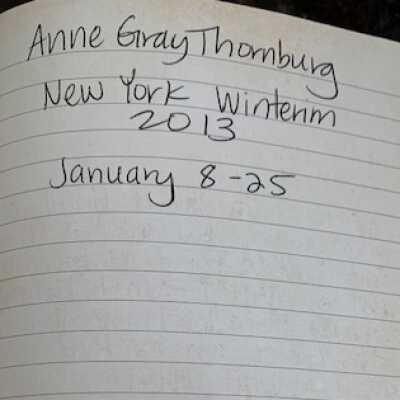 Anne Gray Thornburg
New York Winterim
2013
January 8-25